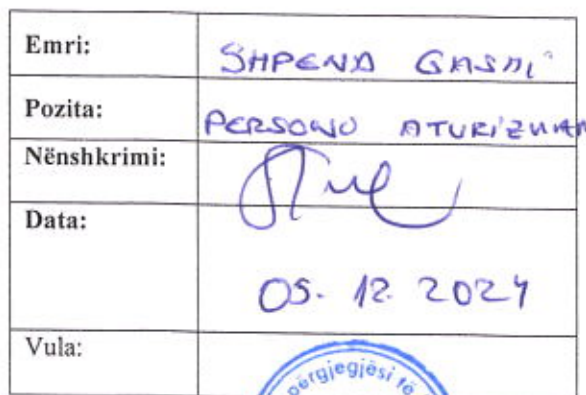 Emri: SHPEND GASHI
Pozita: PERSONO ATURIZUAR
Nënshkrimi:
Data: 05. 12. 2024
Vula:
përgjegjësi të